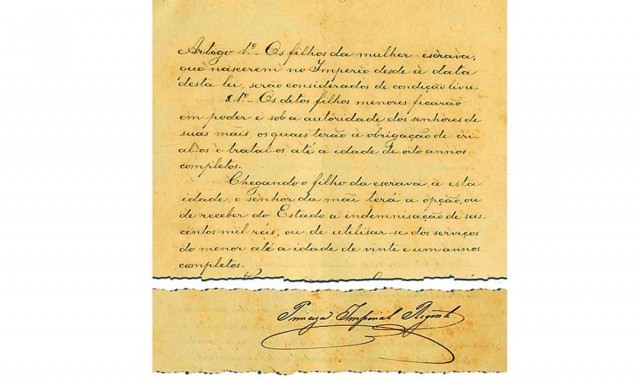 Artogo 1º Os filhos da mulher escrava,
que nascerem no Imperio desde a data
desta lei, serão considerados de condição livre.
§1º Os detos filhos menores ficarão
em poder e sob a autoridade dos senhores de
suas mais, os quaes terão a obrigação de cri
al-os e tratal-os até a idade de oito annos
completos.
Chegando o filho da escrava a esta
idade, o senhor da mãi terá a opção, ou
de receber do Estado a indemnisação de seis
centos mil reis, ou de utilisar-se dos serviços
do menor até a idade de vinte e um annos
completos.
Princeza Imperial Regente